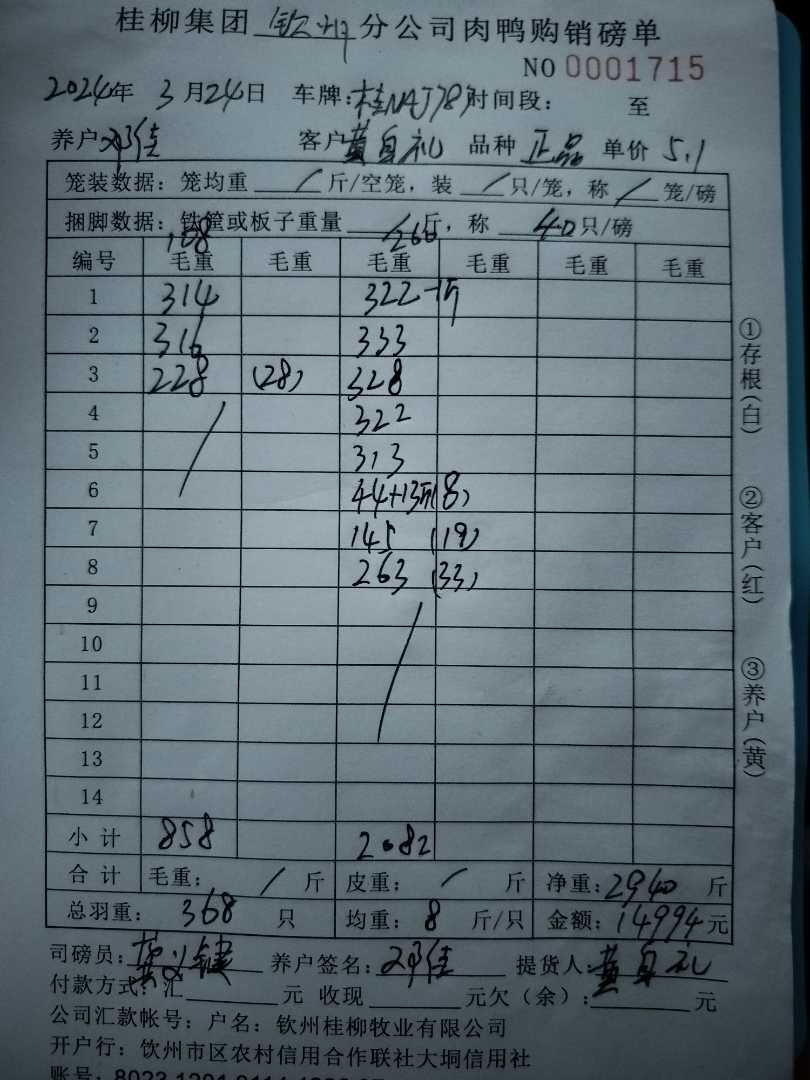 桂柳集团 钦州 分公司肉鸭购销磅单
NO 0001715
2024年 3月24日 车牌:桂NAJ787 时间段: 至
养户 邓佳 客户 黄自礼 品种 正品 单价 5.1
笼装数据:笼均重 / 斤/空笼,装 / 只/笼,称 / 笼/磅
捆脚数据:铁筐或板子重量 / 斤,称 40 只/磅
108 260
编号 毛重 毛重 毛重 毛重 毛重 毛重
1 314 322-1斤
2 316 333
3 228 (28) 328
4 / 322
5 313
6 44+13斤(8)
7 145 (19)
8 263 (33)
9 /
10
11
12
13
14
小计 858 2082
合计 毛重: / 斤 皮重: / 斤 净重:2940 斤
总羽重: 368 只 均重: 8 斤/只 金额:14994元
司磅员: 养户签名:邓佳 提货人:黄自礼
付款方式:汇 元 收现 元欠(余): 元
公司汇款帐号:户名:钦州桂柳牧业有限公司
开户行:钦州市区农村信用合作联社大垌信用社
账号:
①存根(白) ②客户(红) ③养户(黄)